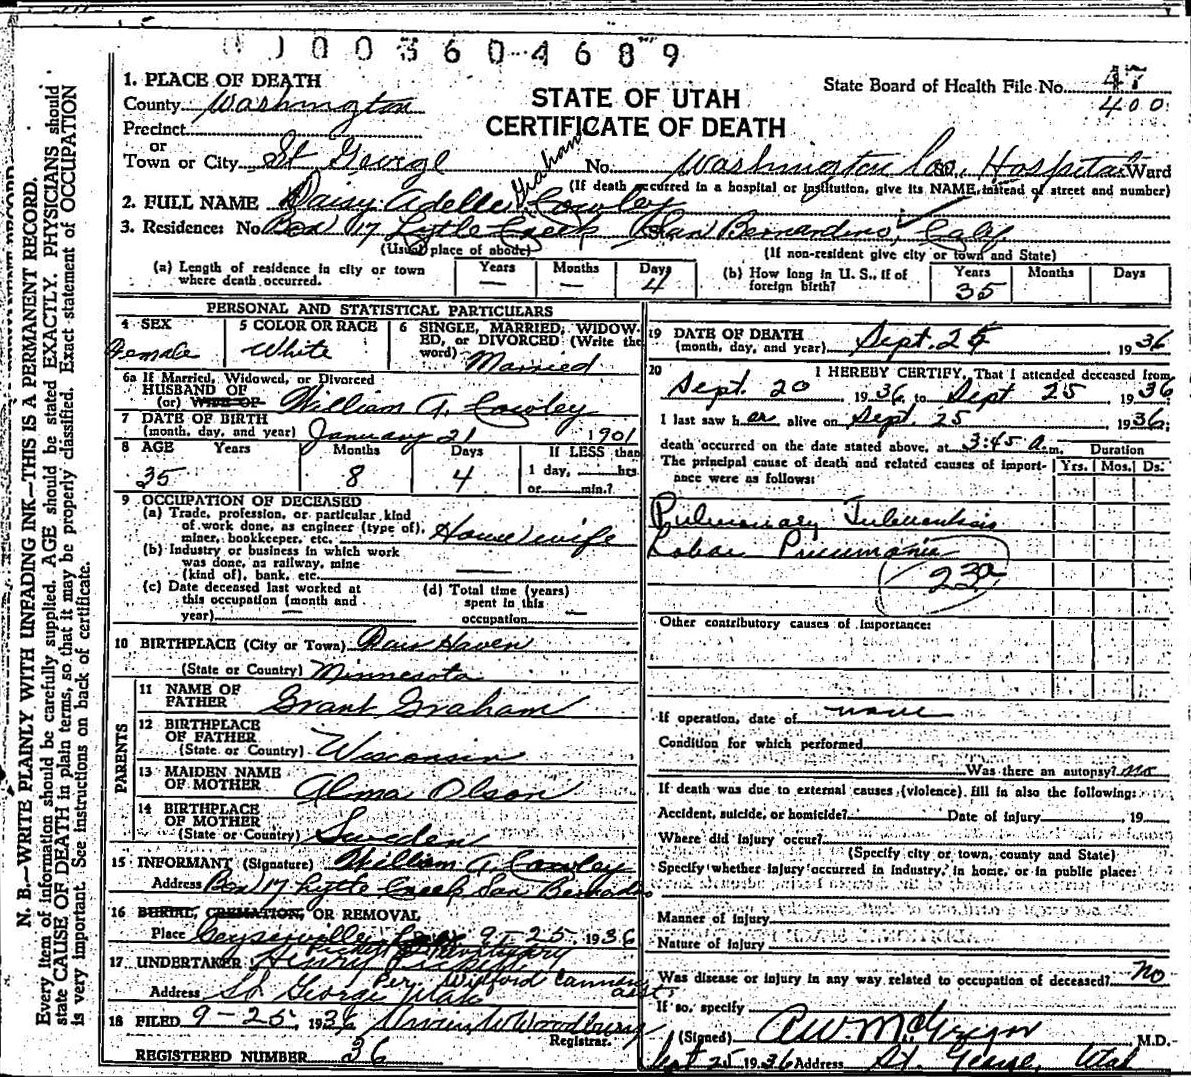 00360-4689
1. PLACE OF DEATH
County Washington
Precinct
or
Town or City St George No. Washington Co., Hospital Ward
STATE OF UTAH
CERTIFICATE OF DEATH
State Board of Health File No. 47
400
(If death occurred in a hospital or institution, give its NAME, instead of street and number)
2. FULL NAME Daisy Adelle Graham Cowley
3. Residence: No Box 17 Lytle Creek San Bernardino, Calif.
(Usual place of abode) (If non-resident give city or town and State)
(a) Length of residence in city or town where death occurred. Years — Months — Days 4
(b) How long in U. S., if of foreign birth? Years 35 Months Days
PERSONAL AND STATISTICAL PARTICULARS
4 SEX Female
5 COLOR OR RACE White
6 SINGLE, MARRIED, WIDOWED, OR DIVORCED (Write the word) Married
6a If Married, Widowed, or Divorced
HUSBAND OF
(or) WIFE OF William A. Cowley
7 DATE OF BIRTH
(month, day, and year) January 21 1901
8 AGE Years 35 Months 8 Days 4 If LESS than
1 day, hrs.
or min.?
9 OCCUPATION OF DECEASED
(a) Trade, profession, or particular kind
of work done, as engineer (type of),
miner, bookkeeper, etc. Housewife
(b) Industry or business in which work
was done, as railway, mine
(kind of), bank, etc. —
(c) Date deceased last worked at
this occupation (month and
year) —
(d) Total time (years)
spent in this
occupation —
10 BIRTHPLACE (City or Town) Haven
(State or Country) Minnesota
PARENTS
11 NAME OF
FATHER Grant Graham
12 BIRTHPLACE
OF FATHER
(State or Country) Wisconsin
13 MAIDEN NAME
OF MOTHER Alma Olson
14 BIRTHPLACE
OF MOTHER
(State or Country) Sweden
15 INFORMANT (Signature) William A Cowley
Address Box 17 Lytle Creek San Bernardino
16 BURIAL, CREMATION, OR REMOVAL
Place 9-25 1936
17 UNDERTAKER Henry
Per. Wilford Cannon asst
Address St George Utah
18 FILED 9-25, 1936 Irvin W Woodbury
Registrar.
REGISTERED NUMBER 36
19 DATE OF DEATH
(month, day, and year) Sept. 25 1936
20 I HEREBY CERTIFY, That I attended deceased from
Sept. 20 1936, to Sept 25 1936
I last saw her alive on Sept. 25 1936;
death occurred on the date stated above, at 3:45 a.m.
The principal cause of death and related causes of importance were as follows:
Duration
Yrs. Mos. Ds.
Pulmonary Tuberculosis
Lobar Pneumonia
23a
Other contributory causes of importance:
If operation, date of none
Condition for which performed
Was there an autopsy? no
If death was due to external causes (violence) fill in also the following:
Accident, suicide, or homicide? Date of injury , 19
Where did injury occur?
(Specify city or town, county and State)
Specify whether injury occurred in industry, in home, or in public place:
Manner of injury
Nature of injury
Was disease or injury in any way related to occupation of deceased? No
If so, specify
(Signed) A.W. McGregor M.D.
Sept 25 1936 Address St. George, Utah
N. B.—WRITE PLAINLY WITH UNFADING INK—THIS IS A PERMANENT RECORD.
Every item of information should be carefully supplied. AGE should be stated EXACTLY. PHYSICIANS should
state CAUSE OF DEATH in plain terms, so that it may be properly classified. Exact statement of OCCUPATION
is very important. See instructions on back of certificate.